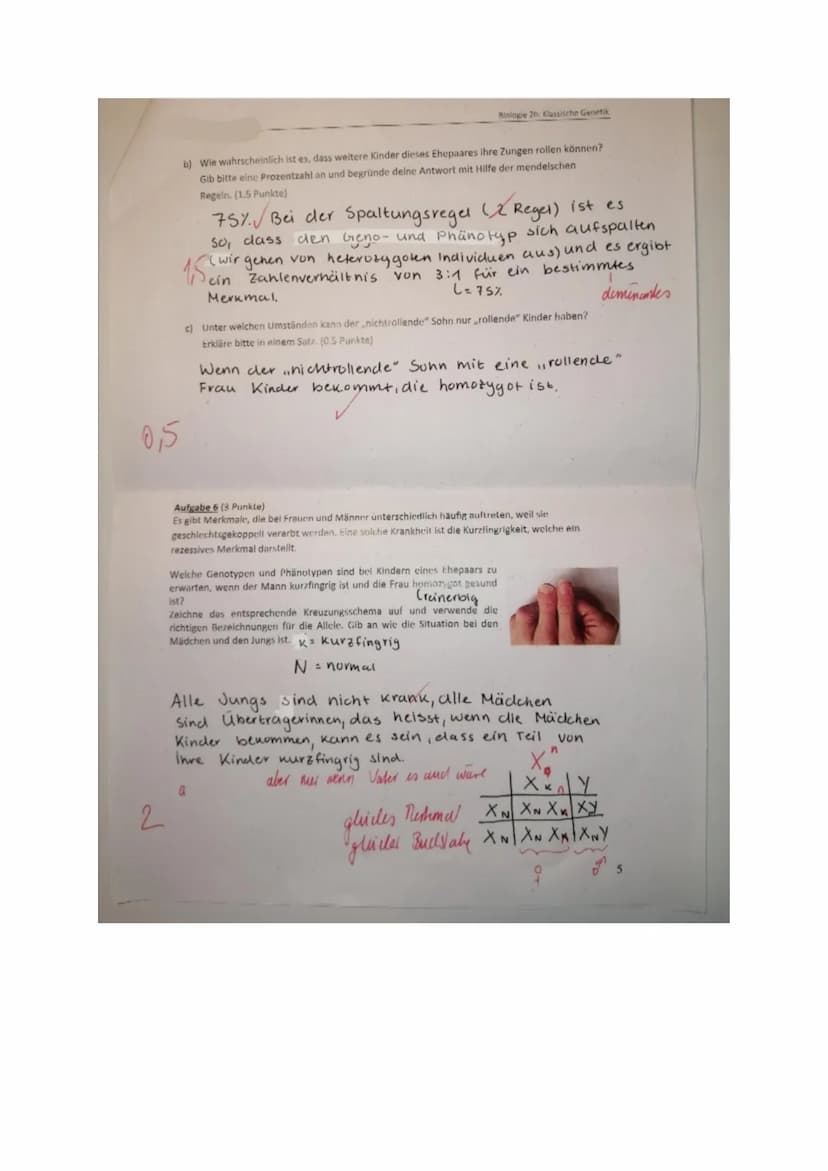 Biologie 2h: Klassische Genetik
b) Wie wahrscheinlich ist es, dass weitere Kinder dieses Ehepaares ihre Zungen rollen können?
Gib bitte eine Prozentzahl an und begründe deine Antwort mit Hilfe der mendelschen
Regeln. (1.5 Punkte)
75%. Bei der Spaltungsregel (2 Regel) ist es
so, dass den Geno- und Phänotyp sich aufspalten
(wir gehen von heterozygoten Individuen aus) und es ergibt
1,5 ein Zahlenverhältnis von 3:1 für ein bestimmtes
Merkmal. = 75%
dominantes
c) Unter welchen Umständen kann der „nichtrollende" Sohn nur „rollende" Kinder haben?
Erkläre bitte in einem Satz. (0.5 Punkte)
Wenn der „nichtrollende" Sohn mit eine „rollende"
Frau Kinder bekommt, die homozygot ist.
0,5
Aufgabe 6 (3 Punkte)
Es gibt Merkmale, die bei Frauen und Männer unterschiedlich häufig auftreten, weil sie
geschlechtsgekoppelt vererbt werden. Eine solche Krankheit ist die Kurzfingrigkeit, welche ein
rezessives Merkmal darstellt.
Welche Genotypen und Phänotypen sind bei Kindern eines Ehepaars zu
erwarten, wenn der Mann kurzfingrig ist und die Frau homozygot gesund
ist?
(reinerbig
Zeichne das entsprechende Kreuzungsschema auf und verwende die
richtigen Bezeichnungen für die Allele. Gib an wie die Situation bei den
Mädchen und den Jungs ist. K = Kurzfingrig
N = normal
Alle Jungs sind nicht krank, alle Mädchen
sind Überträgerinnen, das heisst, wenn die Mädchen
Kinder bekommen, kann es sein, dass ein Teil von
ihre Kinder kurzfingrig sind.
a
aber nur wenn Vater es auch wäre
X n
X K n Y
2
gleiches Merkmal
gleicher Buchstabe
X N X N X K X Y
X N X N X K X N Y
♀ ♂
5